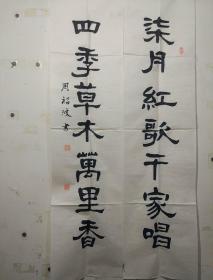 柒月紅歌千家唱
四季草木萬里香
周韶波書